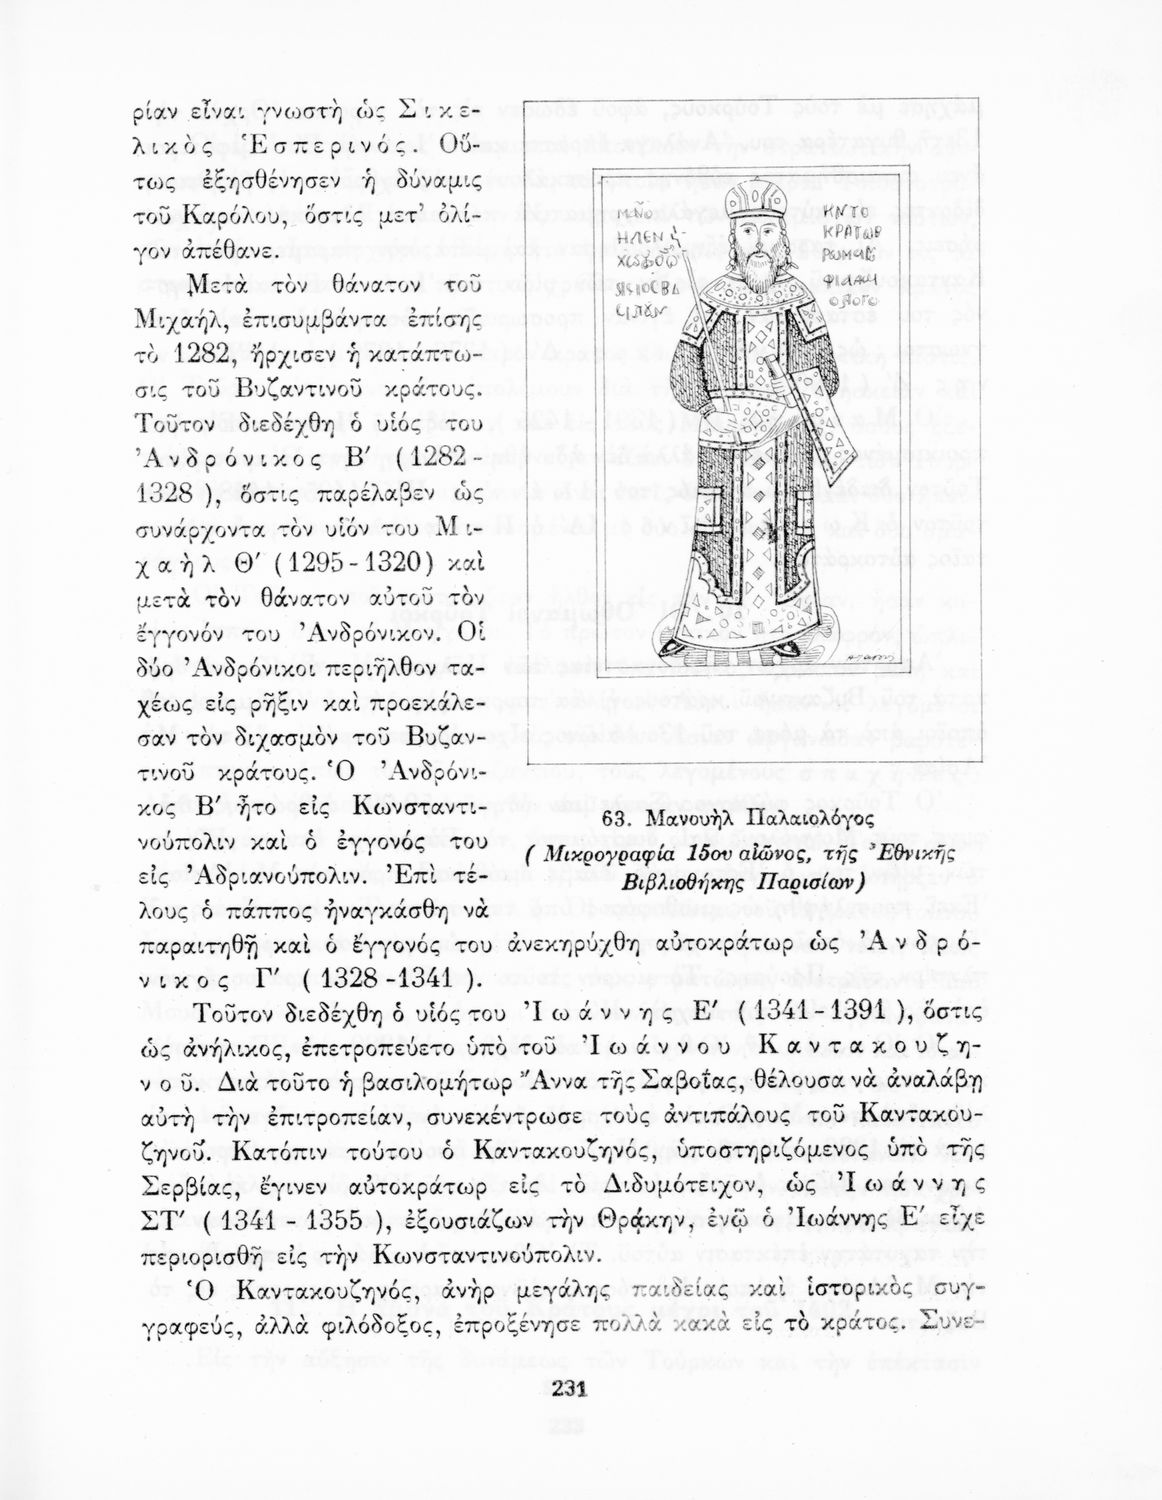 ρίαν εἶναι γνωστὴ ὡς Σικε-
λικὸς Ἑσπερινός. Οὕ-
τως ἐξησθένησεν ἡ δύναμις
τοῦ Καρόλου, ὅστις μετ’ ὀλί-
γον ἀπέθανε.
Μετὰ τὸν θάνατον τοῦ
Μιχαήλ, ἐπισυμβάντα ἐπίσης
τὸ 1282, ἤρχισεν ἡ κατάπτω-
σις τοῦ Βυζαντινοῦ κράτους.
Τοῦτον διεδέχθη ὁ υἱός του
Ἀνδρόνικος Β′ (1282-
1328), ὅστις παρέλαβεν ὡς
συνάρχοντα τὸν υἱόν του Μι-
χαὴλ Θ′ (1295-1320) καὶ
μετὰ τὸν θάνατον αὐτοῦ τὸν
ἔγγονόν του Ἀνδρόνικον. Οἱ
δύο Ἀνδρόνικοι περιῆλθον τα-
χέως εἰς ρῆξιν καὶ προεκάλε-
σαν τὸν διχασμὸν τοῦ Βυζαν-
τινοῦ κράτους. Ὁ Ἀνδρόνι-
κος Β′ ἦτο εἰς Κωνσταντι-
νούπολιν καὶ ὁ ἐγγονός του
εἰς Ἀδριανούπολιν. Ἐπὶ τέ-
λους ὁ πάππος ἠναγκάσθη νὰ
παραιτηθῇ καὶ ὁ ἔγγονός του ἀνεκηρύχθη αὐτοκράτωρ ὡς Ἀνδρό-
νικος Γ′ (1328-1341).
Τοῦτον διεδέχθη ὁ υἱός του Ἰωάννης Ε′ (1341-1391), ὅστις
ὡς ἀνήλικος, ἐπετροπεύετο ὑπὸ τοῦ Ἰωάννου Καντακουζη-
νοῦ. Διὰ τοῦτο ἡ βασιλομήτωρ Ἄννα τῆς Σαβοΐας, θέλουσα νὰ ἀναλάβῃ
αὐτὴ τὴν ἐπιτροπείαν, συνεκέντρωσε τοὺς ἀντιπάλους τοῦ Καντακου-
ζηνοῦ. Κατόπιν τούτου ὁ Καντακουζηνός, ὑποστηριζόμενος ὑπὸ τῆς
Σερβίας, ἔγινεν αὐτοκράτωρ εἰς τὸ Διδυμότειχον, ὡς Ἰωάννης
ΣΤ′ (1341 - 1355), ἐξουσιάζων τὴν Θράκην, ἐνῷ ὁ Ἰωάννης Ε′ εἶχε
περιορισθῆ εἰς τὴν Κωνσταντινούπολιν.
Ὁ Καντακουζηνός, ἀνὴρ μεγάλης παιδείας καὶ ἱστορικὸς συγ-
γραφεύς, ἀλλὰ φιλόδοξος, ἐπροξένησε πολλὰ κακὰ εἰς τὸ κράτος. Συνε-
63. Μανουὴλ Παλαιολόγος
(Μικρογραφία 15ου αἰῶνος, τῆς Ἐθνικῆς
Βιβλιοθήκης Παρισίων)
231